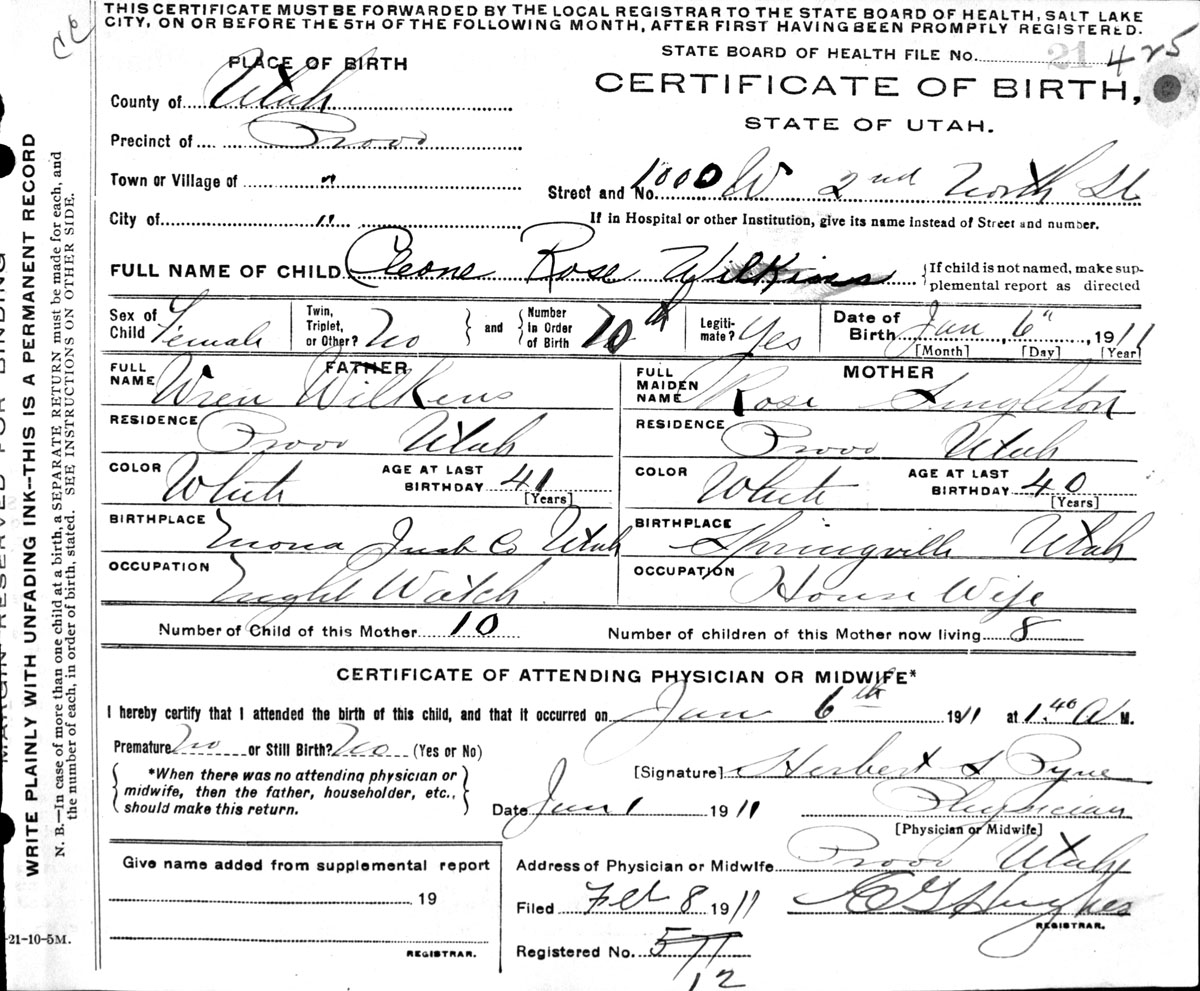 THIS CERTIFICATE MUST BE FORWARDED BY THE LOCAL REGISTRAR TO THE STATE BOARD OF HEALTH, SALT LAKE
CITY, ON OR BEFORE THE 5TH OF THE FOLLOWING MONTH, AFTER FIRST HAVING BEEN PROMPTLY REGISTERED.
STATE BOARD OF HEALTH FILE No. 21 425
PLACE OF BIRTH
CERTIFICATE OF BIRTH,
STATE OF UTAH.
County of Utah
Precinct of Provo
Town or Village of "
Street and No. 1000 W 2nd North St
City of "
If in Hospital or other Institution, give its name instead of Street and number.
FULL NAME OF CHILD Cleone Rose Wilkins
If child is not named, make sup-
plemental report as directed
Sex of Child Female
Twin, Triplet, or Other? No
and
Number in Order of Birth 10th
Legiti-mate? Yes
Date of Birth Jan 6", 1911
[Month] [Day] [Year]
FATHER
MOTHER
FULL NAME Wren Wilkins
FULL MAIDEN NAME Rose Singleton
RESIDENCE Provo Utah
RESIDENCE Provo Utah
COLOR White AGE AT LAST BIRTHDAY 41 [Years]
COLOR White AGE AT LAST BIRTHDAY 40 [Years]
BIRTHPLACE Mona Juab Co Utah
BIRTHPLACE Springville Utah
OCCUPATION Night Watch
OCCUPATION House Wife
Number of Child of this Mother 10
Number of children of this Mother now living 8
CERTIFICATE OF ATTENDING PHYSICIAN OR MIDWIFE*
I hereby certify that I attended the birth of this child, and that it occurred on Jan 6th 1911 at 1.40 A M.
Premature No or Still Birth? No (Yes or No)
*When there was no attending physician or
midwife, then the father, householder, etc.,
should make this return.
[Signature] Herbert S Pyne
Date Jan 1 1911
Physician
[Physician or Midwife]
Give name added from supplemental report
19
REGISTRAR.
Address of Physician or Midwife Provo Utah
Filed Feb 8 1911
Hughes
REGISTRAR.
Registered No. 577
12
MARGIN RESERVED FOR BINDING
WRITE PLAINLY WITH UNFADING INK--THIS IS A PERMANENT RECORD
N. B.—In case of more than one child at a birth, a SEPARATE RETURN must be made for each, and
the number of each, in order of birth, stated. SEE INSTRUCTIONS ON OTHER SIDE.
-21-10-5M.